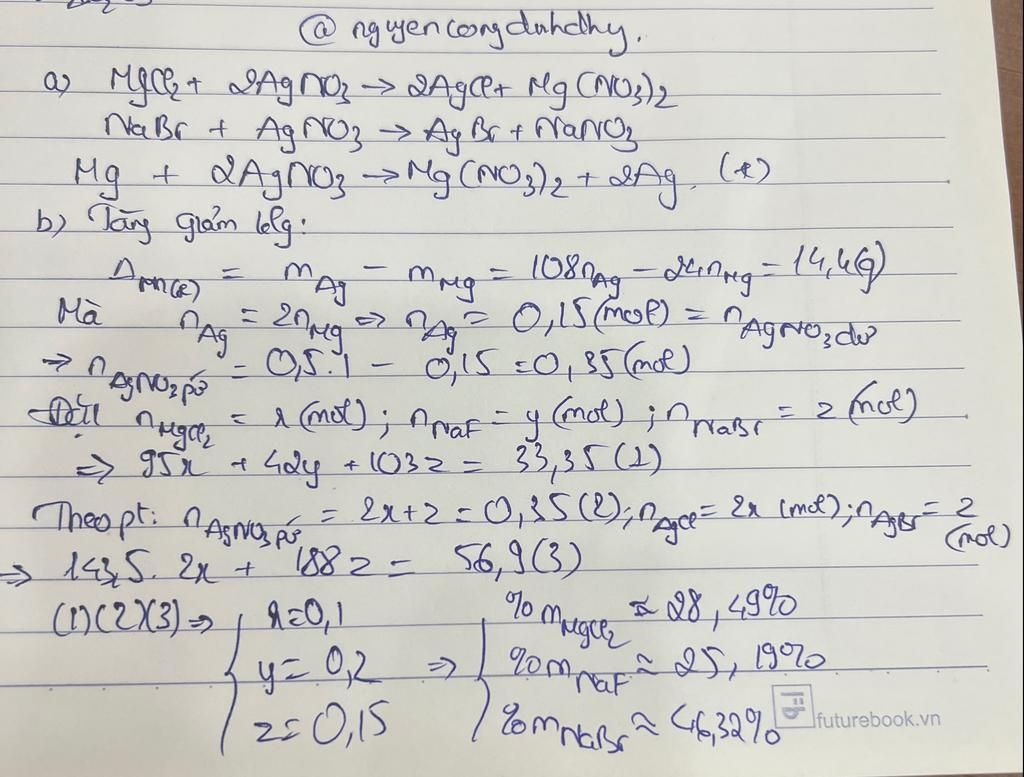 @ nguyencongduhdhy.
a) MgCl2 + 2AgNO3 → 2AgCl + Mg(NO3)2
NaBr + AgNO3 → AgBr + NaNO3
Mg + 2AgNO3 → Mg(NO3)2 + 2Ag. (*)
b) Tăng giảm klg:
Δm(*) = mAg - mMg = 108nAg - 24nMg = 14,4(g)
Mà nAg = 2nMg => nAg = 0,15(mol) = nAgNO3 dư
=> nAgNO3 pứ = 0,5.1 - 0,15 = 0,35(mol)
Đặt nMgCl2 = x(mol); nNaF = y(mol); nNaBr = z(mol)
=> 95x + 42y + 103z = 33,35(1)
Theo pt: nAgNO3 pứ = 2x+z = 0,35(2); nAgCl = 2x (mol); nAgBr = z
(mol)
=> 143,5. 2x + 188z = 56,9(3)
(1)(2)(3) => x=0,1 %mMgCl2 ≈ 28,49%
y = 0,2 => %mNaF ≈ 25,19%
z = 0,15 %mNaBr ≈ 46,32%
futurebook.vn